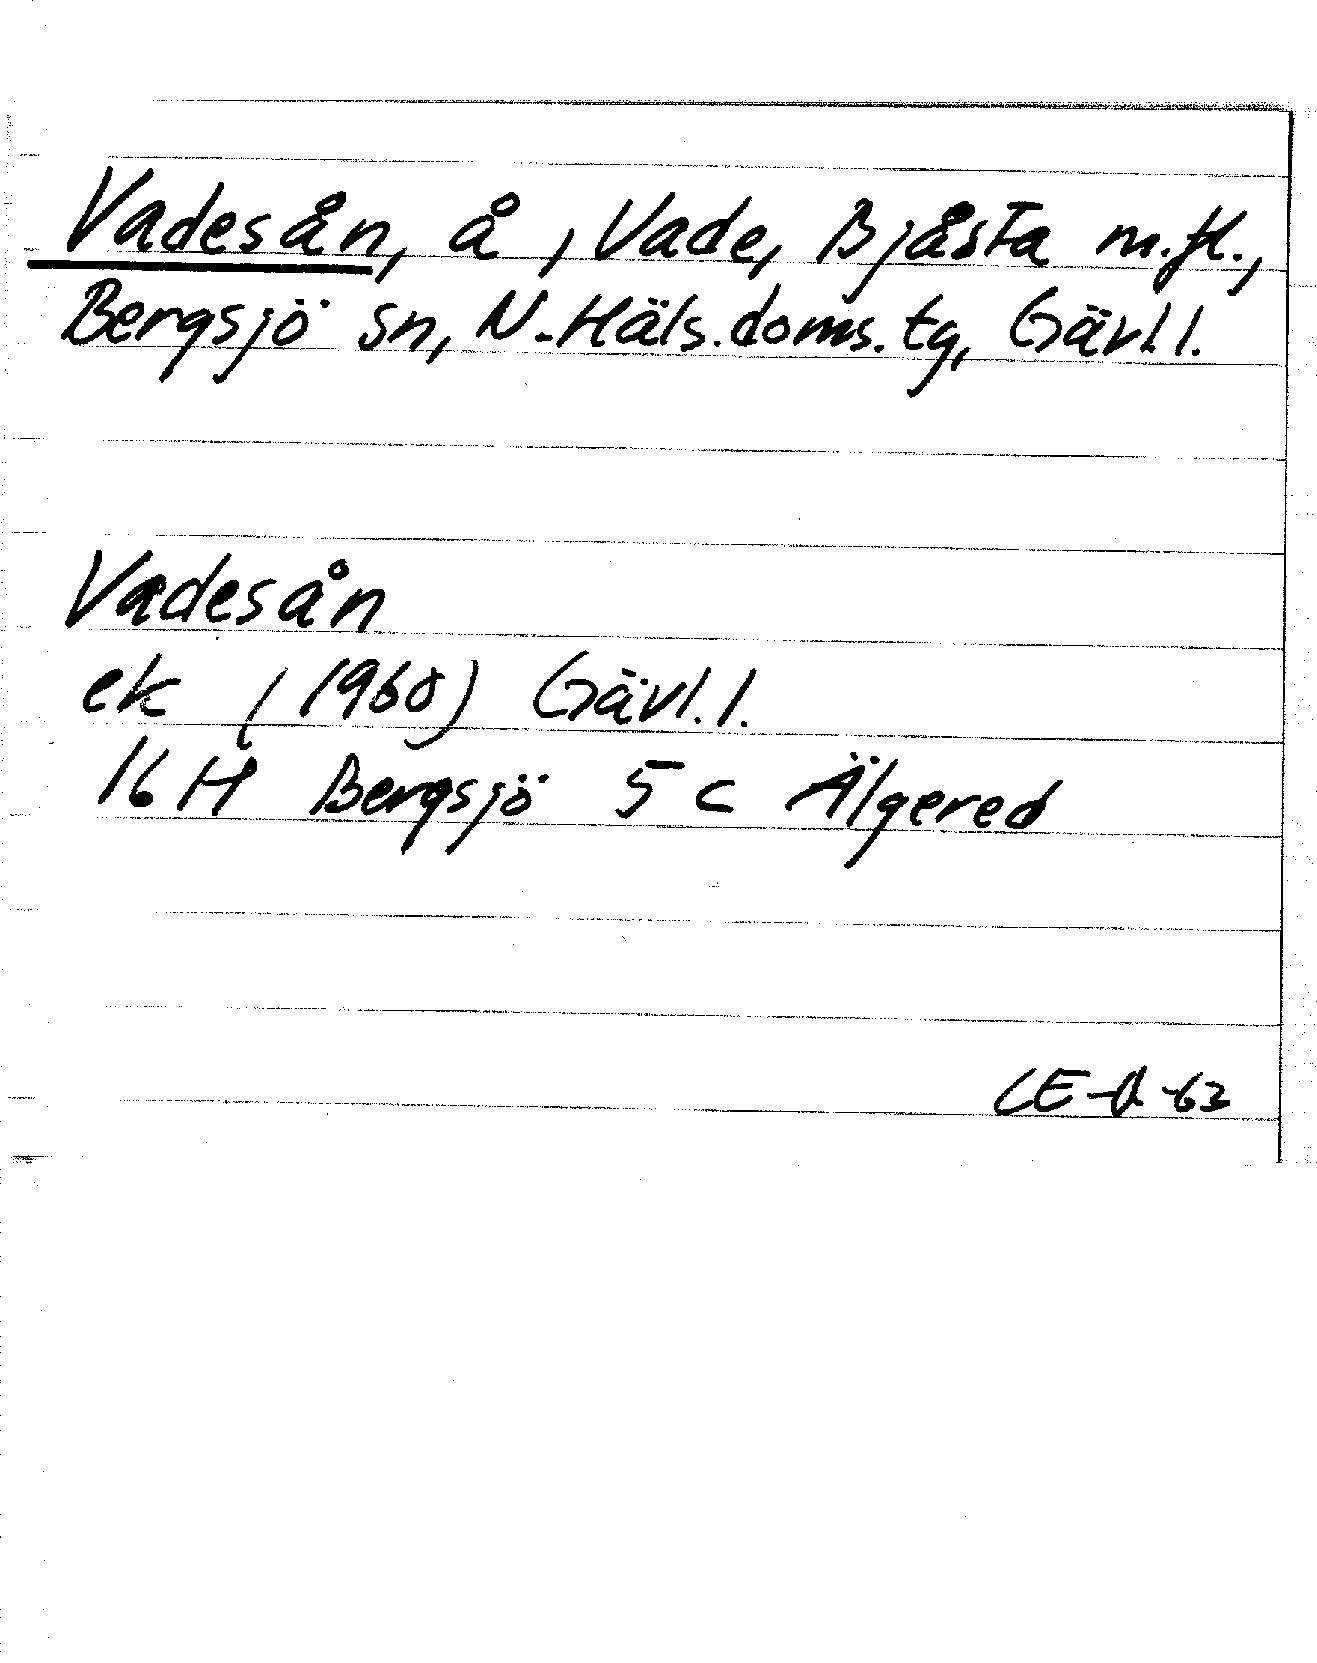 Vadesån, å, Vade, Bjåsta m.fl.,
Bergsjö sn, N. Häls. doms. tg, Gävl. l.
Vadesån
ek (1960) Gävl. l.
16 H Bergsjö 5 c Älgered